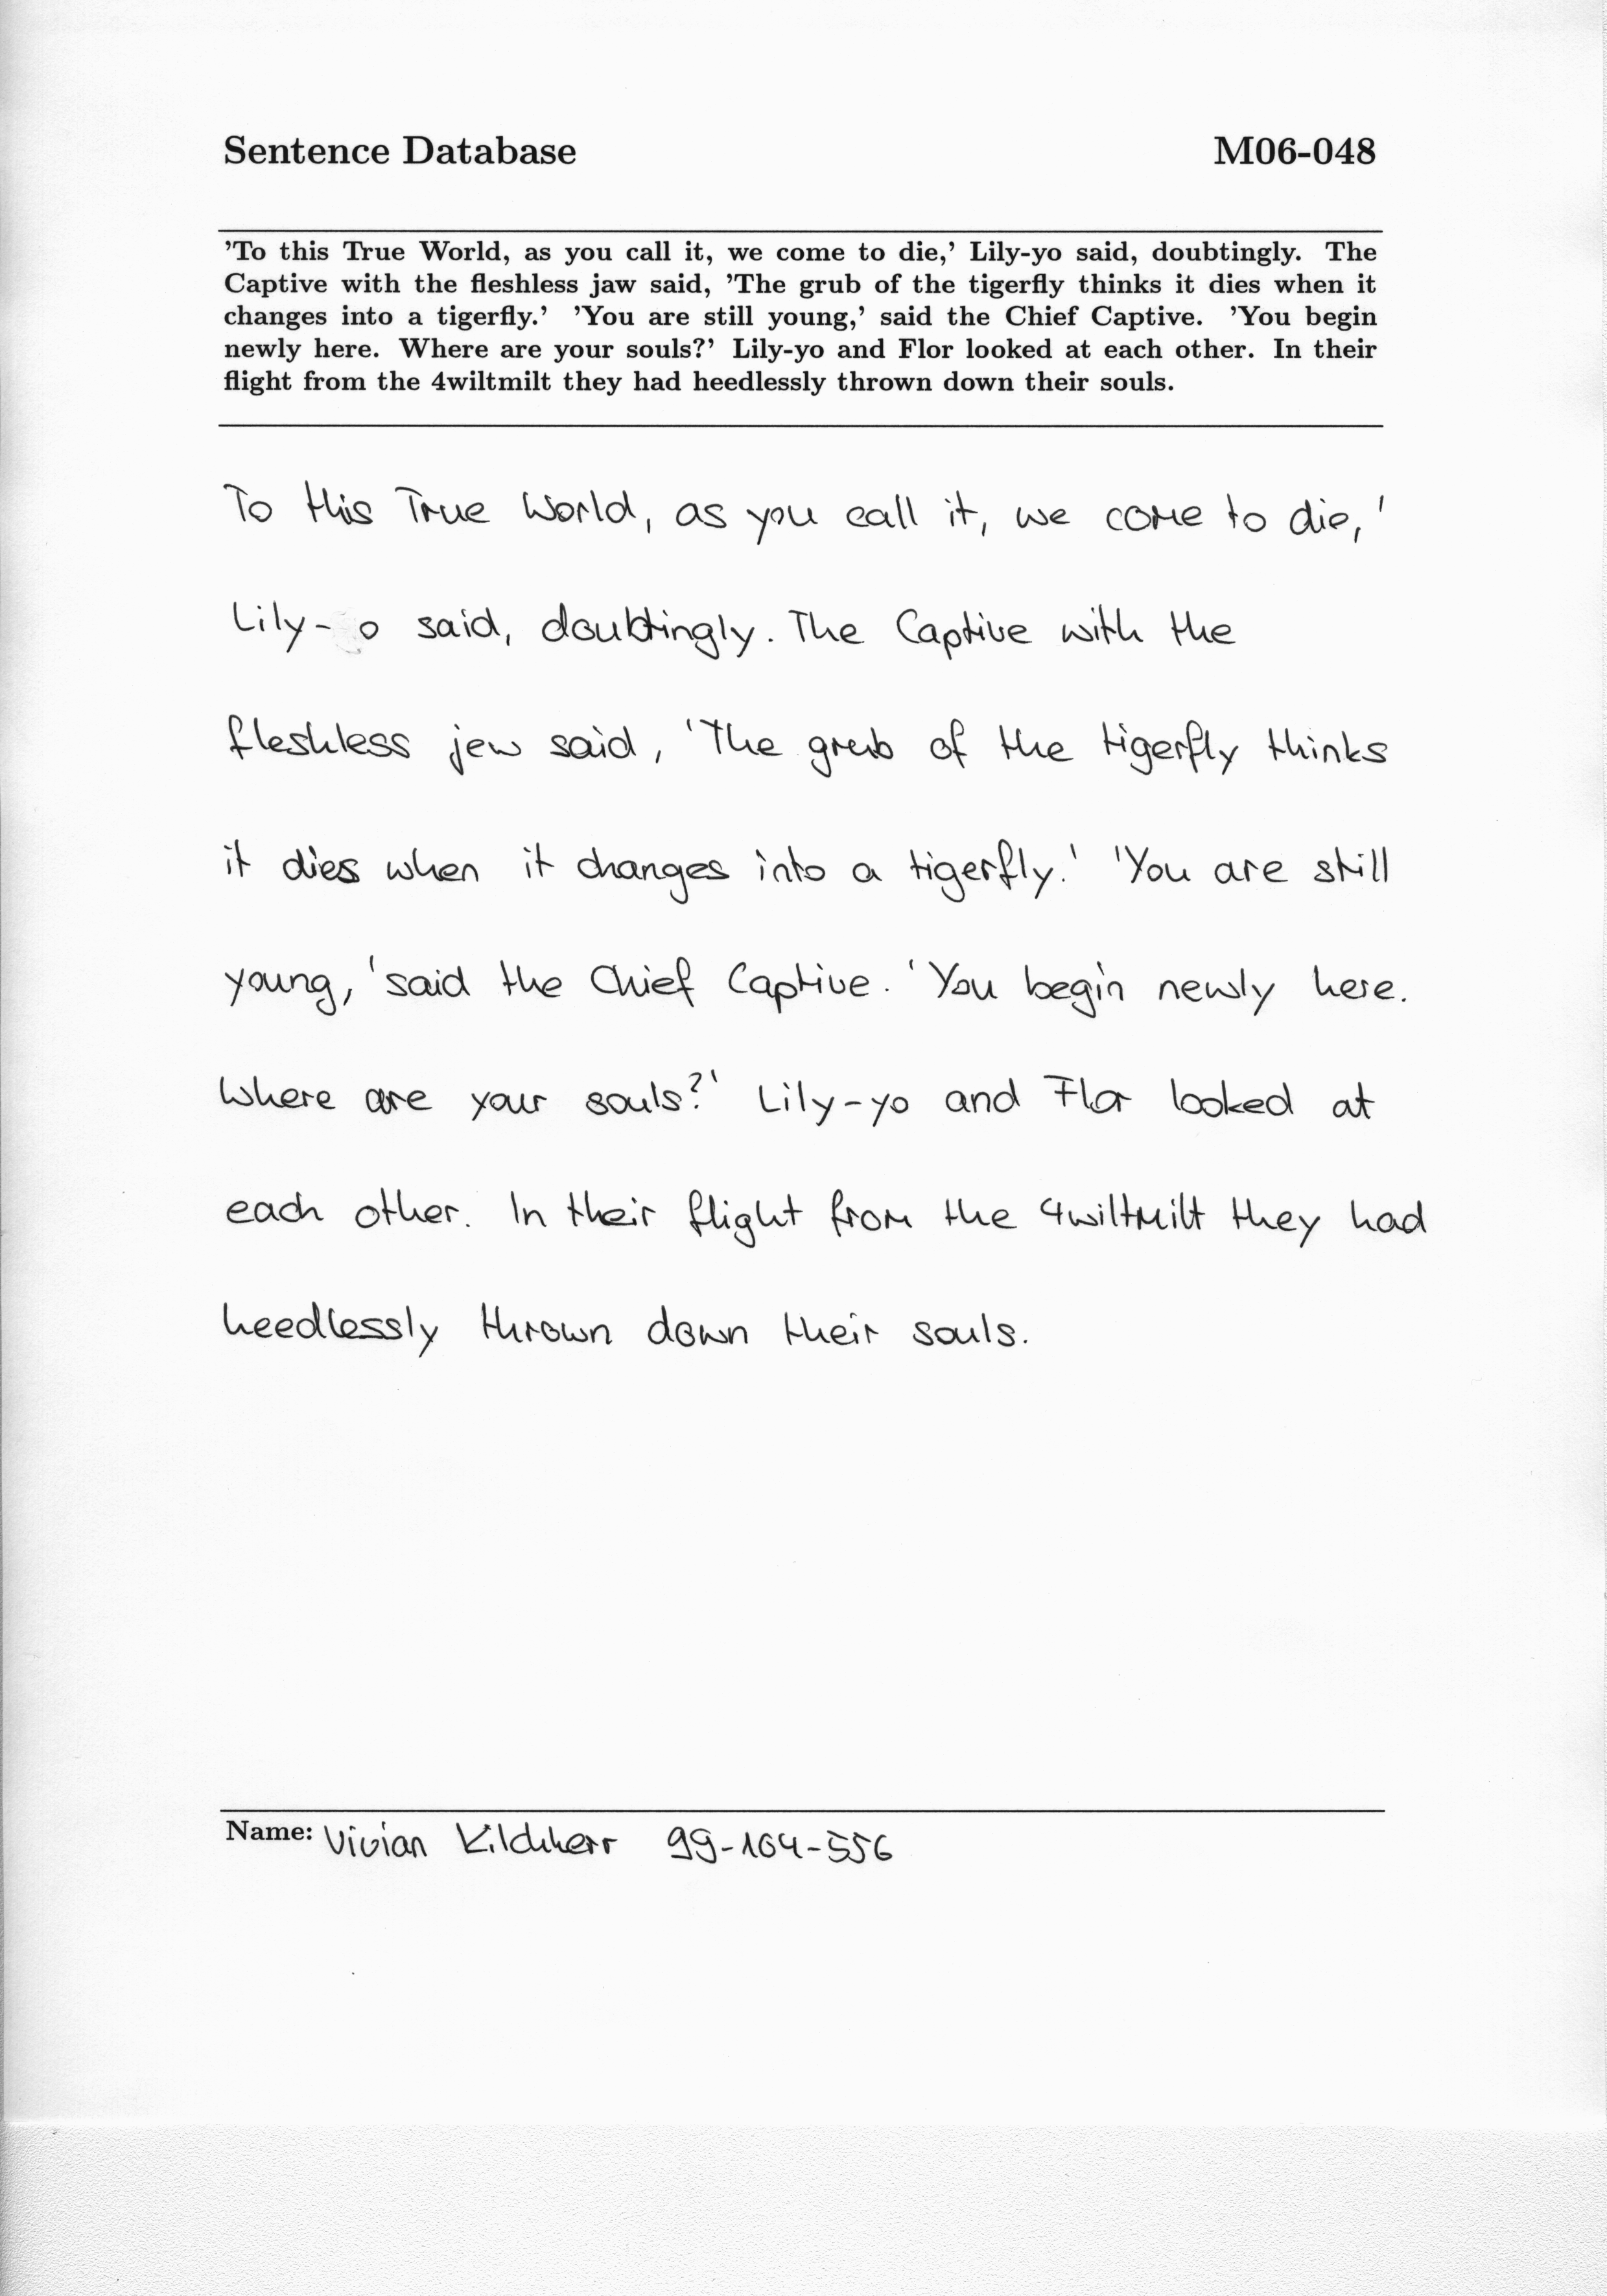 Sentence Database M06-048
’To this True World, as you call it, we come to die,’ Lily-yo said, doubtingly. The
Captive with the fleshless jaw said, ’The grub of the tigerfly thinks it dies when it
changes into a tigerfly.’ ’You are still young,’ said the Chief Captive. ’You begin
newly here. Where are your souls?’ Lily-yo and Flor looked at each other. In their
flight from the 4wiltmilt they had heedlessly thrown down their souls.
To this True World, as you call it, we come to die,'
Lily- o said, doubtingly. The Captive with the
fleshless jew said, 'The grub of the tigerfly thinks
it dies when it changes into a tigerfly.' 'You are still
young, 'said the Chief Captive. 'You begin newly here.
Where are your souls?' Lily-yo and Flor looked at
each other. In their flight from the 4wiltmilt they had
heedlessly thrown down their souls.
Name: Vivian Kilchherr 99-104-556